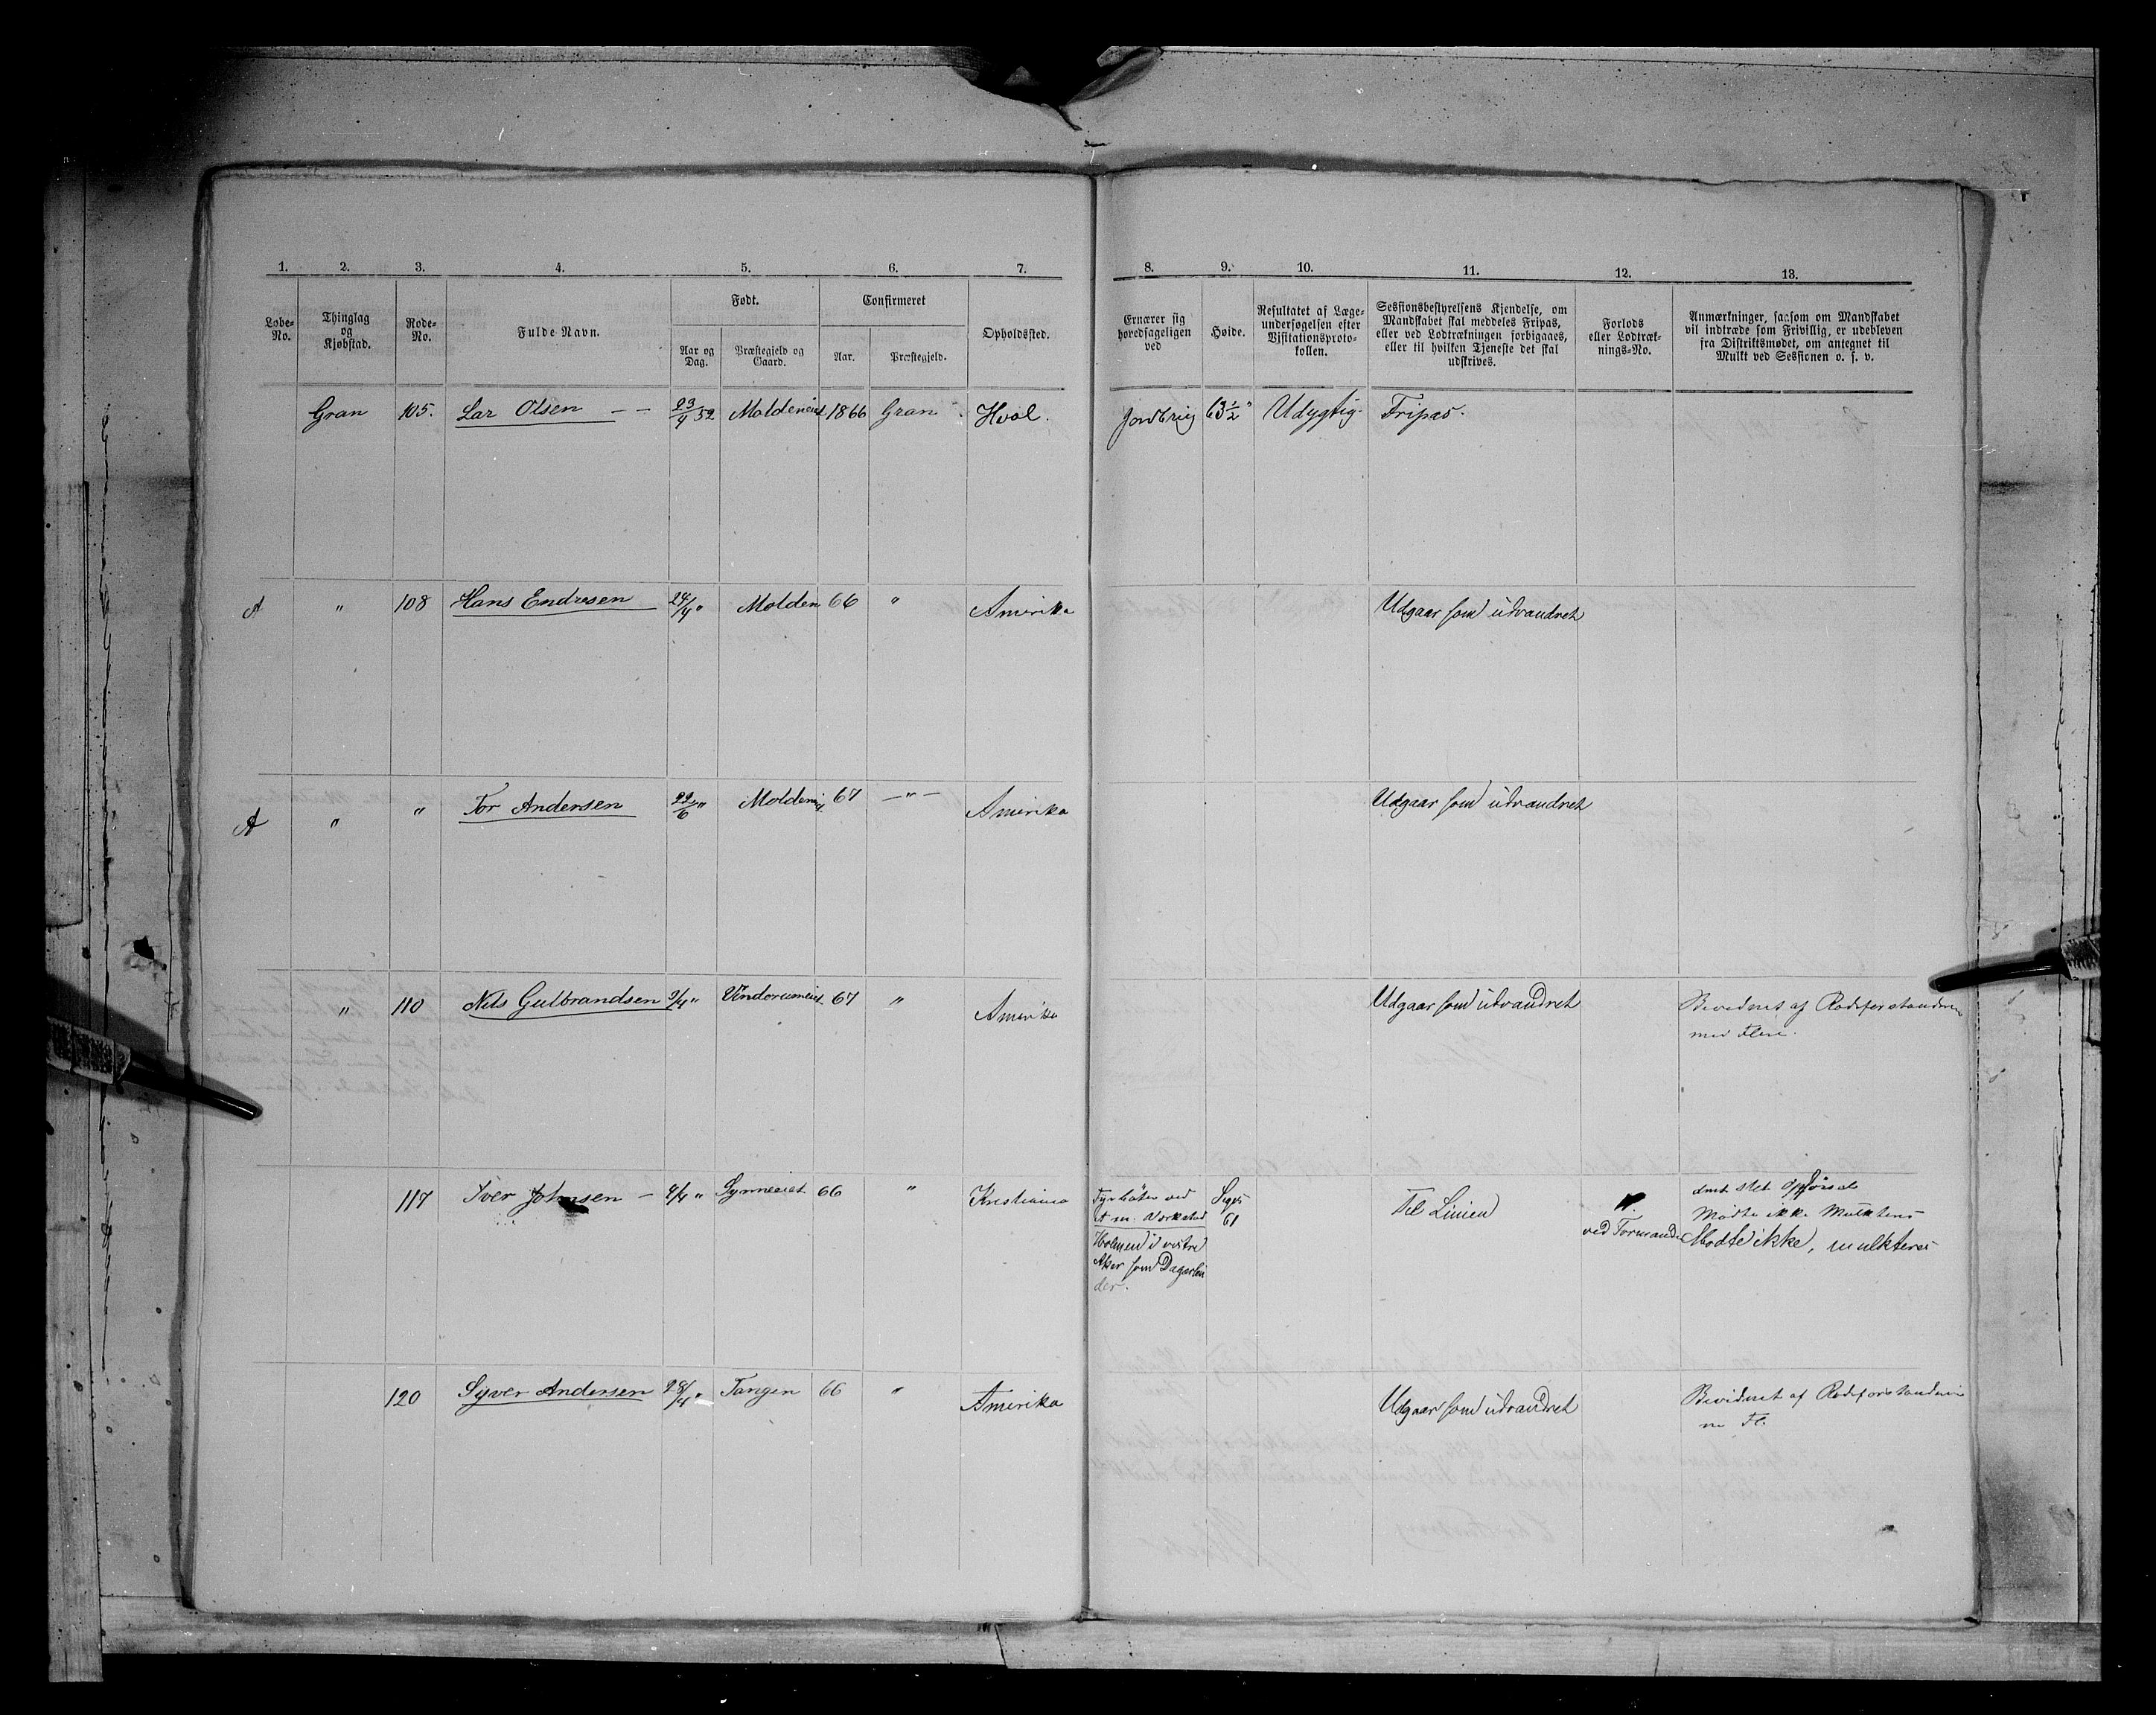 1. 2. 3. 4. 5. 6. 7. 8. 9. 10. 11. 12. 13.
Løbe-No.
Thinglag og Kjøbstad.
Rode-No.
Fulde Navn.
Født.
Aar og Dag.
Præstegjeld og Gaard.
Confirmeret
Aar.
Præstegjeld.
Opholdssted.
Ernærer sig hovedsageligen ved
Høide.
Resultatet af Læge-undersøgelsen efter Visitationsproto-kollen.
Sessionsbestyrelsens Kjendelse, om Mandskabet skal meddeles Fripas, eller ved Lodtrækningen forbigaaes, eller til hvilken Tjeneste det skal udskrives.
Forlods eller Lodtræk-nings-No.
Anmærkninger, saasom om Mandskabet vil indtræde som Frivillig, er udebleven fra Distriktsmødet, om antegnet til Mulkt ved Sessionen o. s. v.
Gran 105. Lar Olsen — — 23/4 52 Moldeneiet 1866 Gran Hval. Jordbrug 63½" Udygtig. Fripas.
A " 108 Hans Endresen 24/4 " Molden 66 " Amerika Udgaar som udvandret
A " " Tor Andersen 22/6 " Moldeneiet 67 —"— Amerika Udgaar som udvandret
" 110 Nils Gulbrandsen 3/4 " Vindorumeiet 67 " Amerika Udgaar som udvandret Bevidnet af Rodeforstanderen
med Flere.
117 Iver Johnsen — 4/4 " Synneeiet 66 " Kristiania Fyrbøter ved
m. Værksted
Holmen i vestre
Aker som Dagarbei
der.
61
Til Linien
ved Formanden
slet Opførsel
Mødte ikke Mulkteres
Mødte ikke, mulkteres
120 Syver Andersen 28/4 " Tangen 66 " Amerika Udgaar som udvandret Bevidnet af Rodeforstanderen
m Fl.